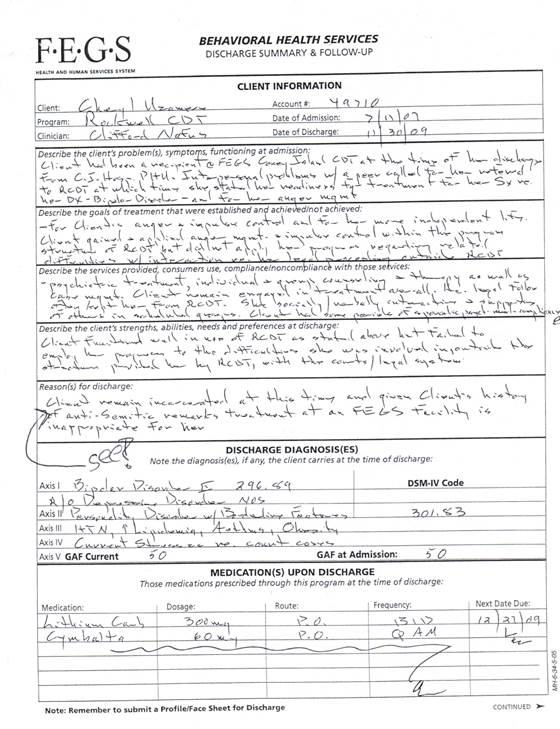 F·E·G·S
HEALTH AND HUMAN SERVICES SYSTEM
BEHAVIORAL HEALTH SERVICES
DISCHARGE SUMMARY & FOLLOW-UP
CLIENT INFORMATION
Client: Cheryl Uzamere Account #: 49710
Program: Rockwell CDT Date of Admission: 7/11/07
Clinician: Clifford Date of Discharge: 11/30/09
Describe the client's problem(s), symptoms, functioning at admission:
Client had been a recipient @ FEGS Coney Island CDT at the time of her discharge
from problems w/ a peer called for her
to RCDT at which time she stated her readiness for treatment for her Sx re.
her DX - Bipolar Disorder - and for her anger mgmt
Describe the goals of treatment that were established and achieved/not achieved:
- for Client's anger + impulse control and for her more independent
Client gained anger mgmt. + impulse control within the program
structure of RCDT but did not her progress regarding
difficulties w/ interaction outside RCDT
Describe the services provided, consumers use, compliance/noncompliance with those services:
- psychiatric treatment, individual + group counseling + therapy as well as
Case mgmt. Client remain engaged in treatment overall.
She socially/verbally interactive + supportive
of others in scheduled groups. Client had some periods of sporadic
Describe the client's strengths, abilities, needs and preferences at discharge:
Client functioned well in use of RCDT as stated above but failed to
employ her progress to the difficulties she was involved in outside the
structure provided her by RCDT, with the courts/legal system
Reason(s) for discharge:
Client remain incarcerated at this time and given Client's history
of anti-Semitic remarks treatment at an FEGS Facility is
inappropriate for her
see!
DISCHARGE DIAGNOSIS(ES)
Note the diagnosis(es), if any, the client carries at the time of discharge:
Axis I Bipolar Disorder II 296.89 DSM-IV Code
R/O Depressive Disorder NOS
Axis II Personality Disorder w/ Borderline Features 301.83
Axis III HTN, Asthma, Obesity
Axis IV Current re. court cases
Axis V GAF Current 50 GAF at Admission: 50
MEDICATION(S) UPON DISCHARGE
Those medications prescribed through this program at the time of discharge:
Medication: Dosage: Route: Frequency: Next Date Due:
Lithium Carb 300mg P.O. BID 12/27/09
Cymbalta 60mg P.O. Q AM
Note: Remember to submit a Profile/Face Sheet for Discharge
CONTINUED
MH-6-34-5-05